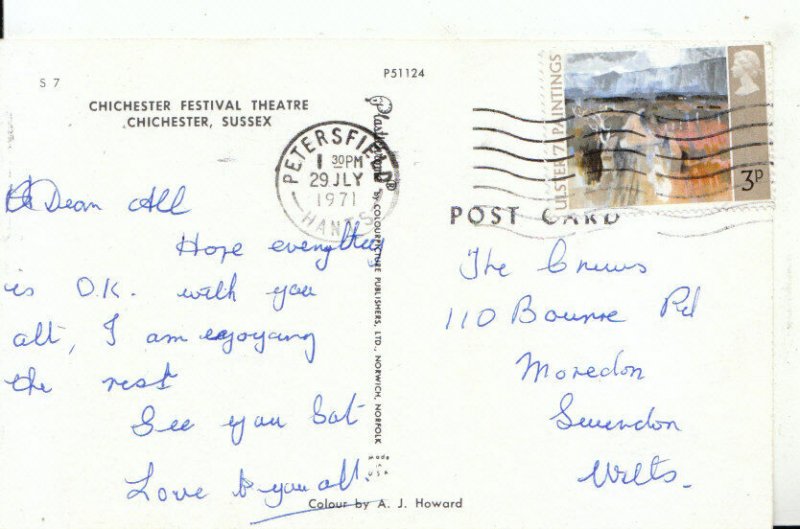 S 7
P51124
CHICHESTER FESTIVAL THEATRE
CHICHESTER, SUSSEX
PETERSFIELD
1 30PM
29 JLY
1971
HANTS
ULSTER '71 PAINTINGS
3P
POST CARD
Dear All
Hope everything
is O.K. with you
all, I am enjoying
the rest
See you Sat
Love to you all.
The
110 Bourne Rd
Moredon
Swindon
Wilts.
by COLOURPICTURE PUBLISHERS, LTD., NORWICH, NORFOLK
Made
USA
Colour by A. J. Howard